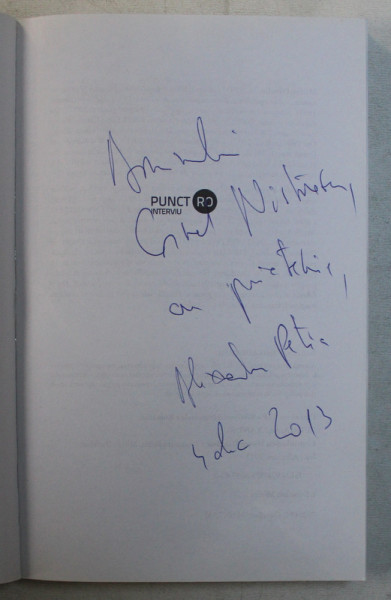 Domnului
PUNCT RO
INTERVIU
Costel
cu prietenie,
Alexandru Petria
4 dec 2013